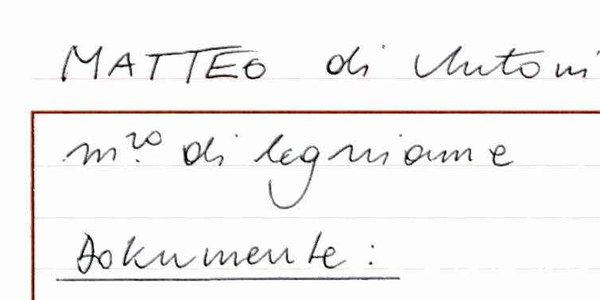 MATTEO di Antoni
m.ro di legniame
Dokumente: